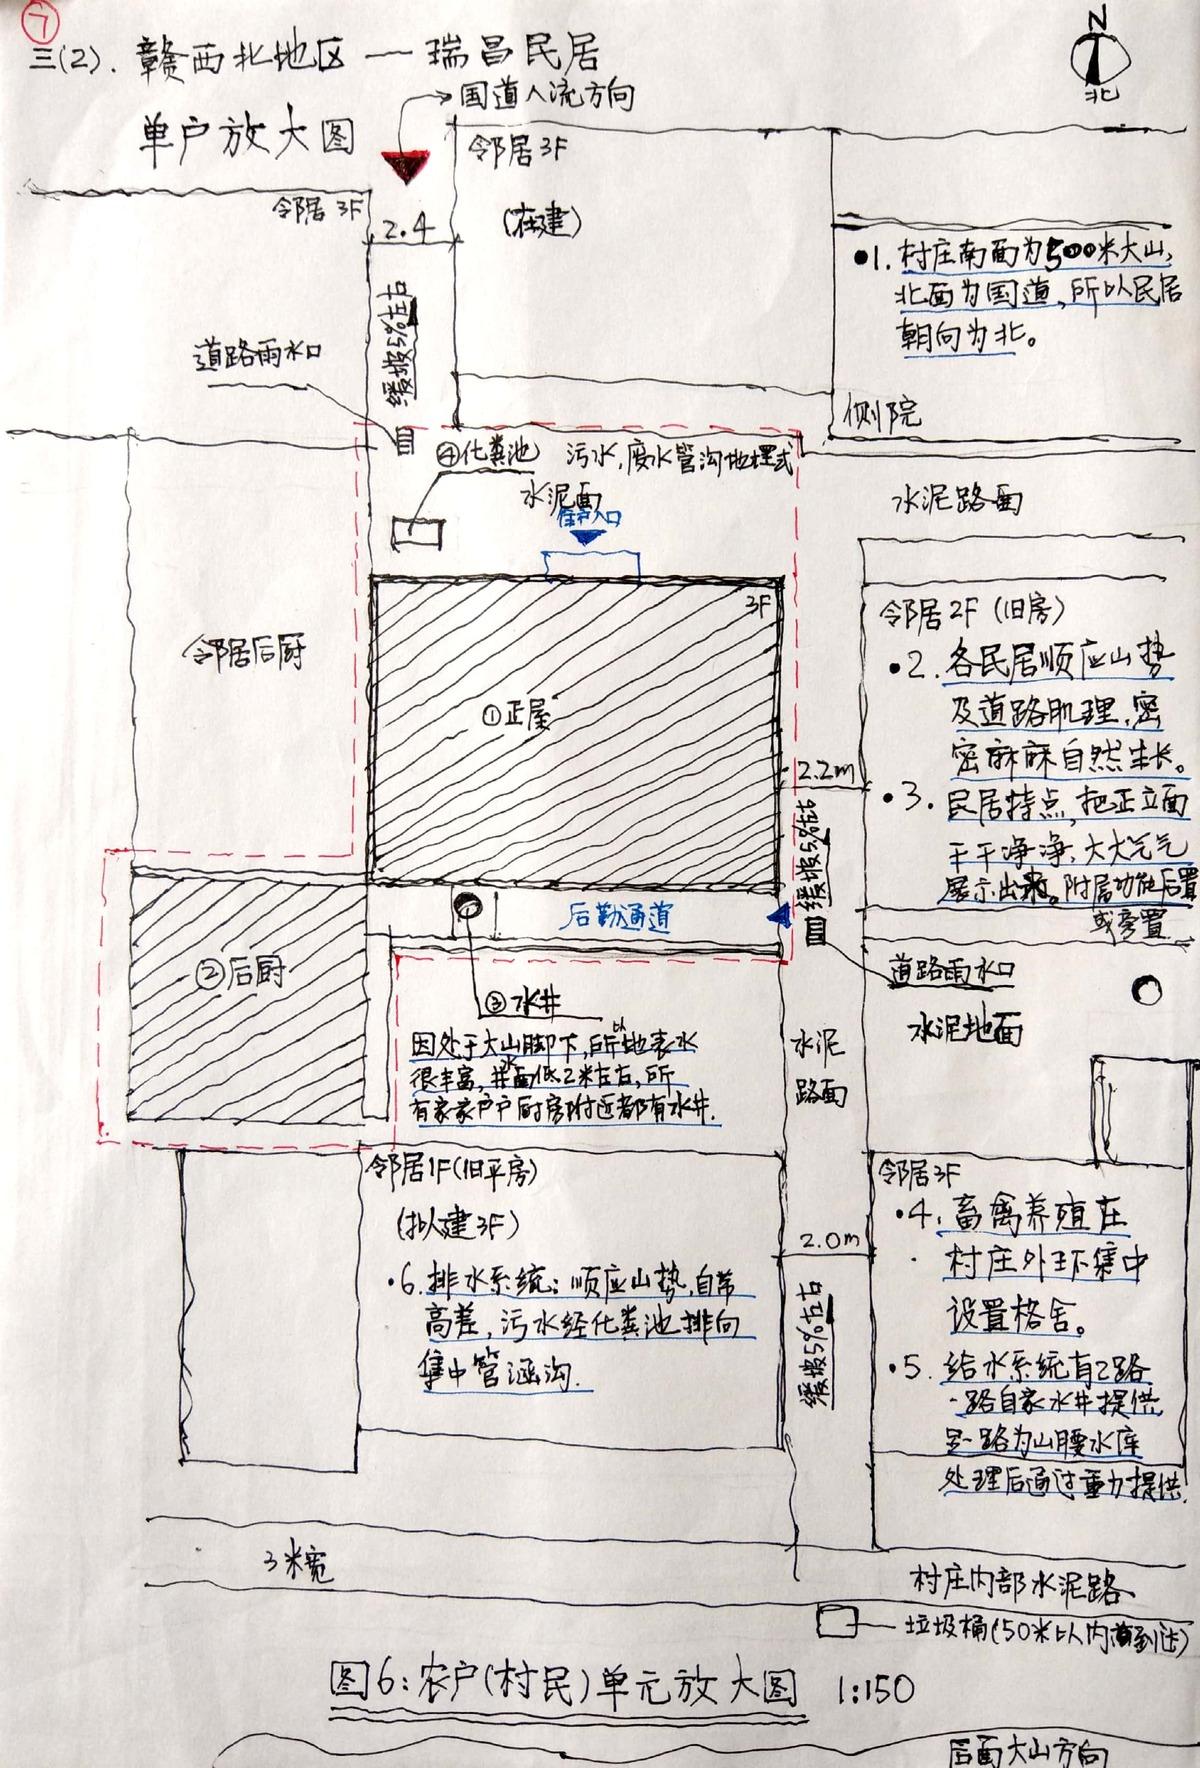 7
三(2). 赣西北地区 — 瑞昌民居
单户放大图
国道人流方向
N
北
邻居3F
(在建)
邻居 3F
2.4
缓坡5%左右
道路雨水口
•1. 村庄南面为500米大山,
北面为国道,所以民居
朝向为北。
侧院
④化粪池
污水,废水管沟地埋式
水泥面
住户入口
水泥路面
3F
①正屋
邻居后厨
邻居2F (旧房)
•2. 各民居顺应山势
及道路肌理,密
密麻麻自然生长。
2.2m
•3. 民居特点,把正立面
干干净净、大大气气
展示出来。附属功能后置
或旁置
缓坡5%左右
后勤通道
②后厨
道路雨水口
③水井
水泥地面
因处于大山脚下,所以地表水
很丰富,井水面低2米左右,所
有家家户户厨房附近都有水井.
水泥
路面
邻居1F(旧平房)
(拟建3F)
邻居3F
•4. 畜禽养殖在
村庄外环集中
设置格舍。
2.0m
•6. 排水系统:顺应山势,自带
高差,污水经化粪池排向
集中管涵沟.
缓坡5%左右
•5. 给水系统有2路
一路自家水井提供
另一路为山腰水库
处理后通过重力提供.
3米宽
村庄内部水泥路
垃圾桶(50米以内到达)
图6:农户(村民)单元放大图 1:150
后面大山方向